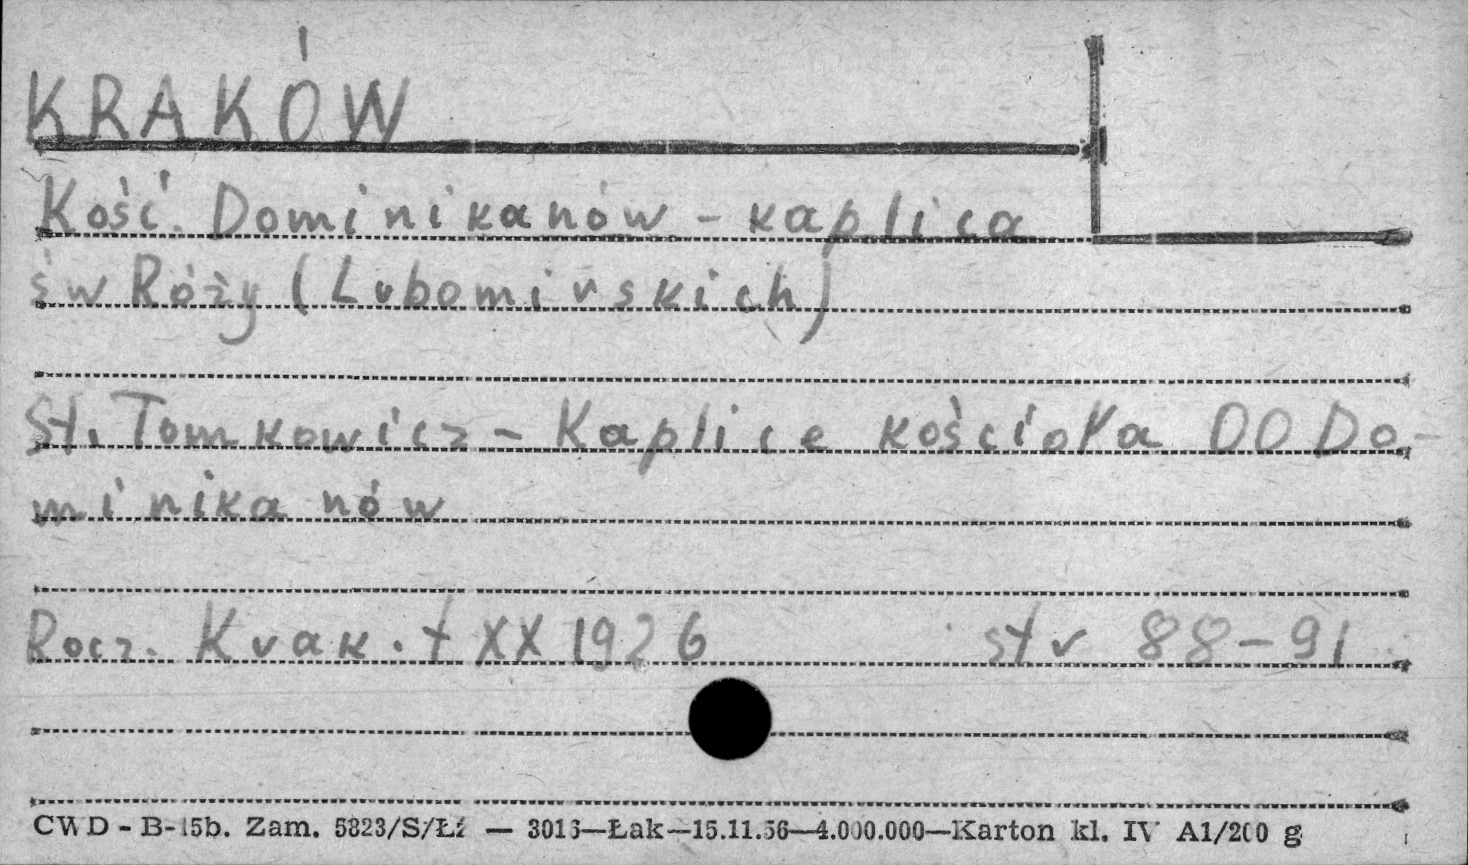 KRAKÓW
Kość. Dominikanów - kaplica
św Róży (Lubomirskich)
St. Tomkowicz - Kaplice kościoła OO Do-
minikanów
Rocz. Krak. t XX 1926 str 88-91
CWD - B-15b. Zam. 5323/S/Łź — 3016—Łak—15.11.56—4.000.000—Karton kl. IV A1/200 g